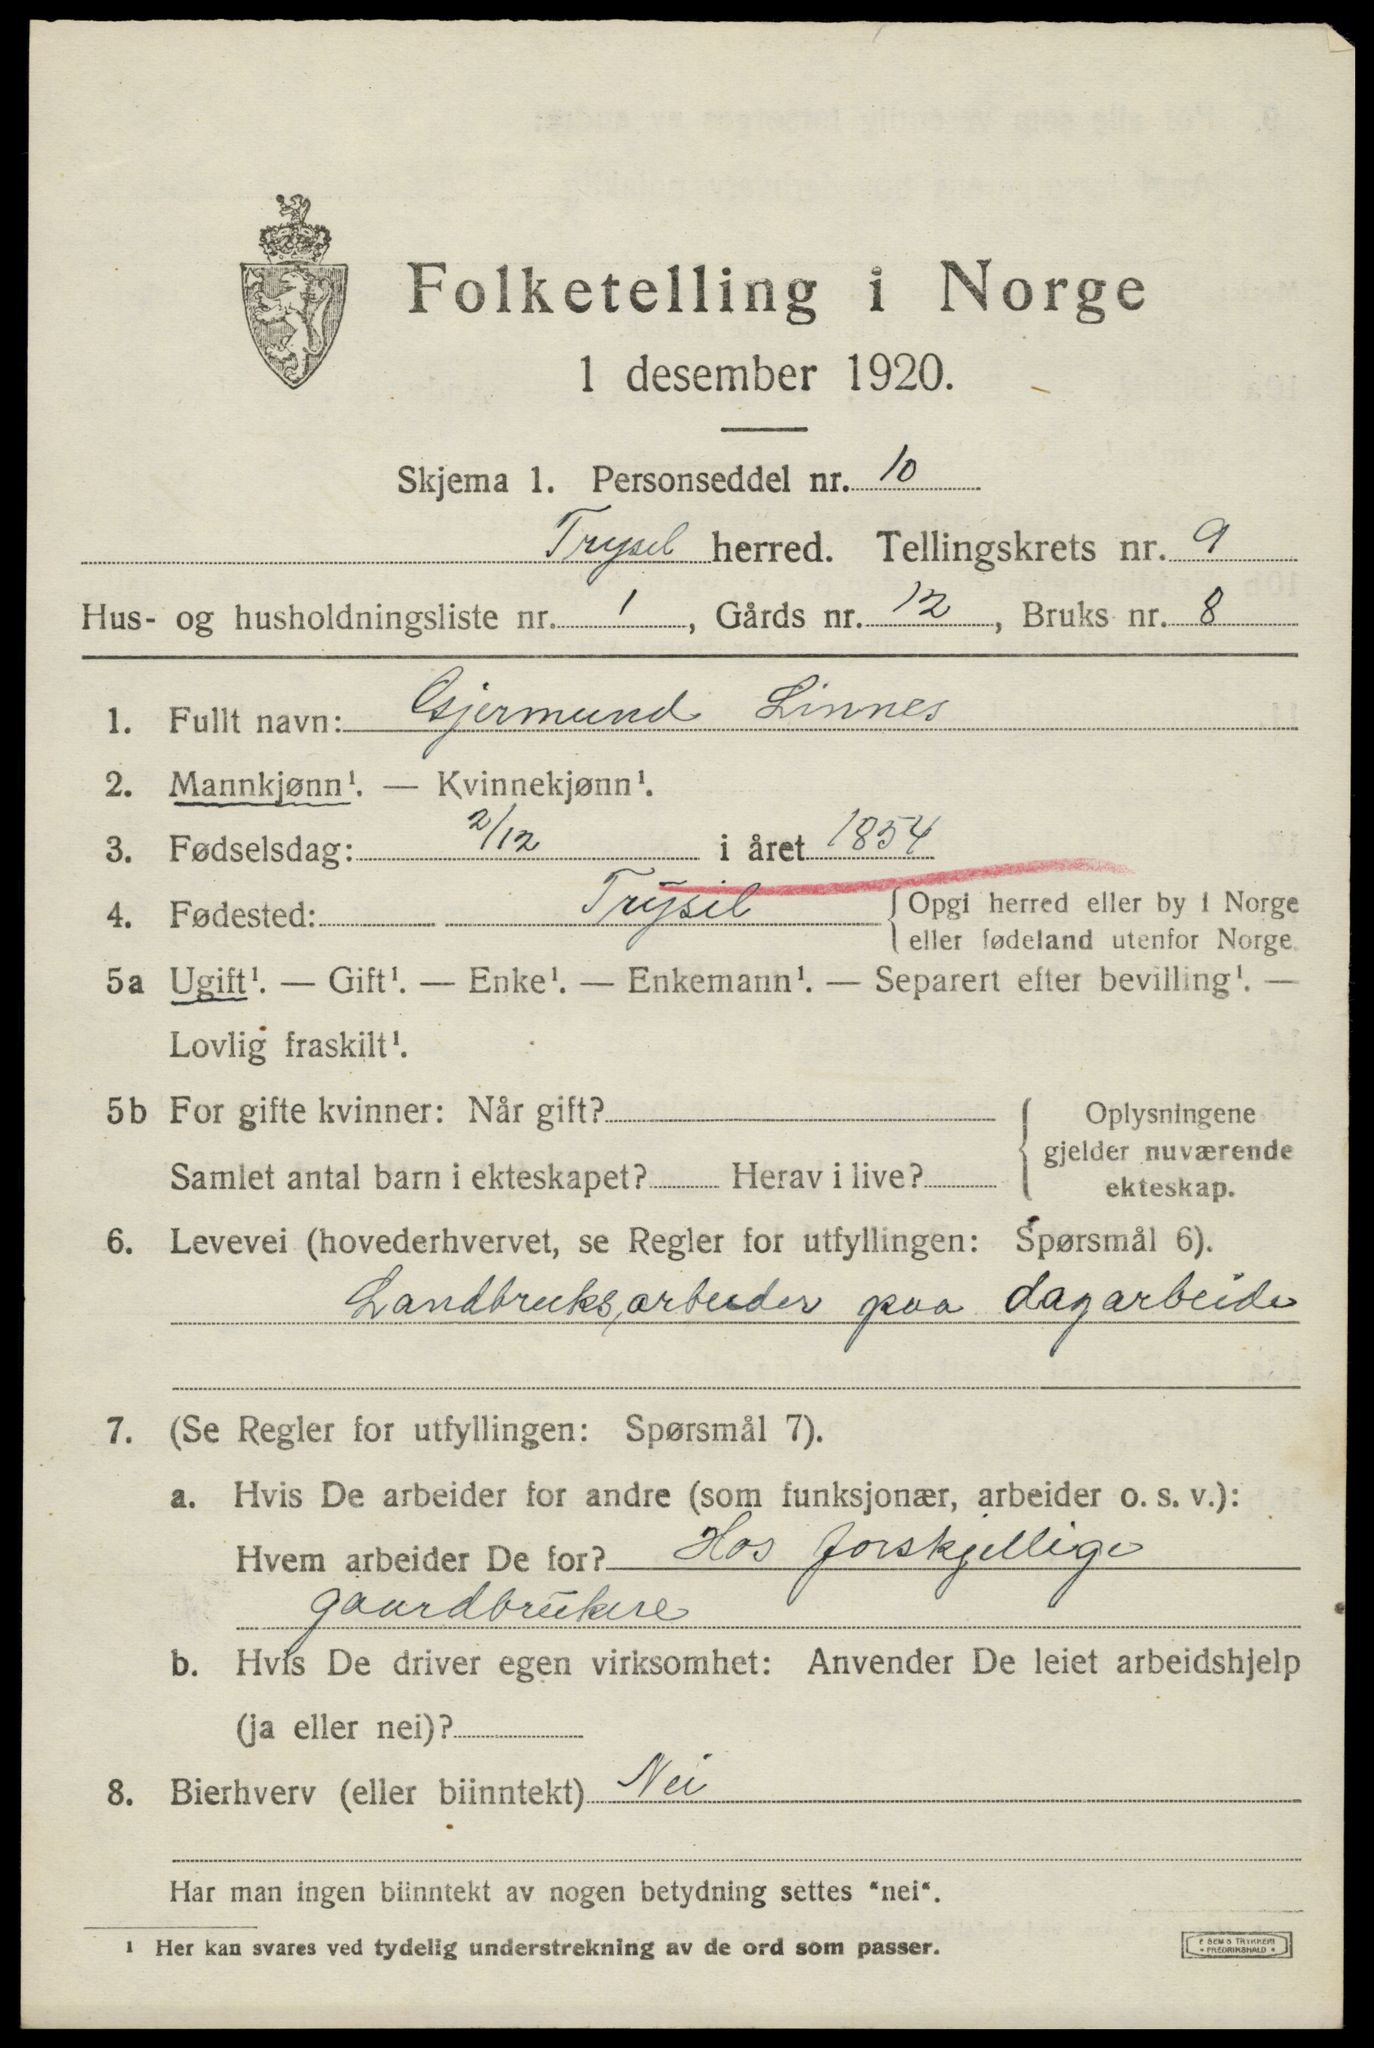 Folketelling i Norge
1 desember 1920.
Skjema 1. Personseddel nr. 10
Trysil herred. Tellingskrets nr. 9
Hus- og husholdningsliste nr. 1, Gårds nr. 12, Bruks nr. 8
1. Fullt navn: Gjermund Linnes
2. Mannkjønn¹. — Kvinnekjønn¹.
3. Fødselsdag: 2/12 i året 1854
4. Fødested: Trysil { Opgi herred eller by i Norge
eller fødeland utenfor Norge
5a Ugift¹. — Gift¹. — Enke¹. — Enkemann¹. — Separert efter bevilling¹. —
Lovlig fraskilt¹.
5b For gifte kvinner: Når gift? { Oplysningene
gjelder nuværende
Samlet antal barn i ekteskapet? Herav i live? ekteskap.
6. Levevei (hovederhvervet, se Regler for utfyllingen: Spørsmål 6).
Landbruks,arbeider paa dagarbeide
7. (Se Regler for utfyllingen: Spørsmål 7).
a. Hvis De arbeider for andre (som funksjonær, arbeider o. s. v.):
Hvem arbeider De for? Hos forskjellige
gaardbrukere
b. Hvis De driver egen virksomhet: Anvender De leiet arbeidshjelp
(ja eller nei)?
8. Bierhverv (eller biinntekt) Nei
Har man ingen biinntekt av nogen betydning settes "nei".
¹ Her kan svares ved tydelig understrekning av de ord som passer.
E SEM S TRYKKERI
• FREDRIKSHALD •